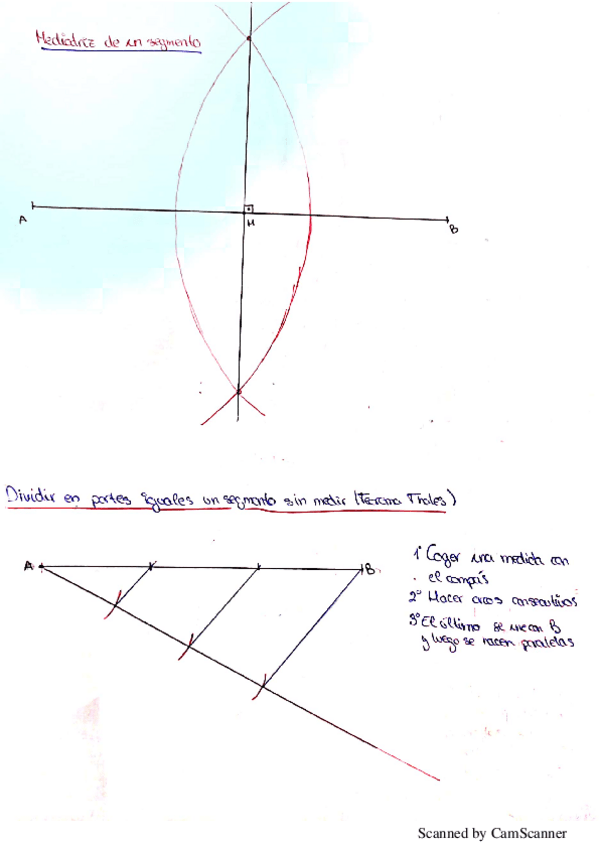 Mediatriz de un segmento
A
M
B
Dividir en partes iguales un segmento sin medir (Teorema Thales)
A
B
1º Coger una medida con
el compás
2º Hacer arcos consecutivos
3º El último se une con B
y luego se hacen paralelas
Scanned by CamScanner